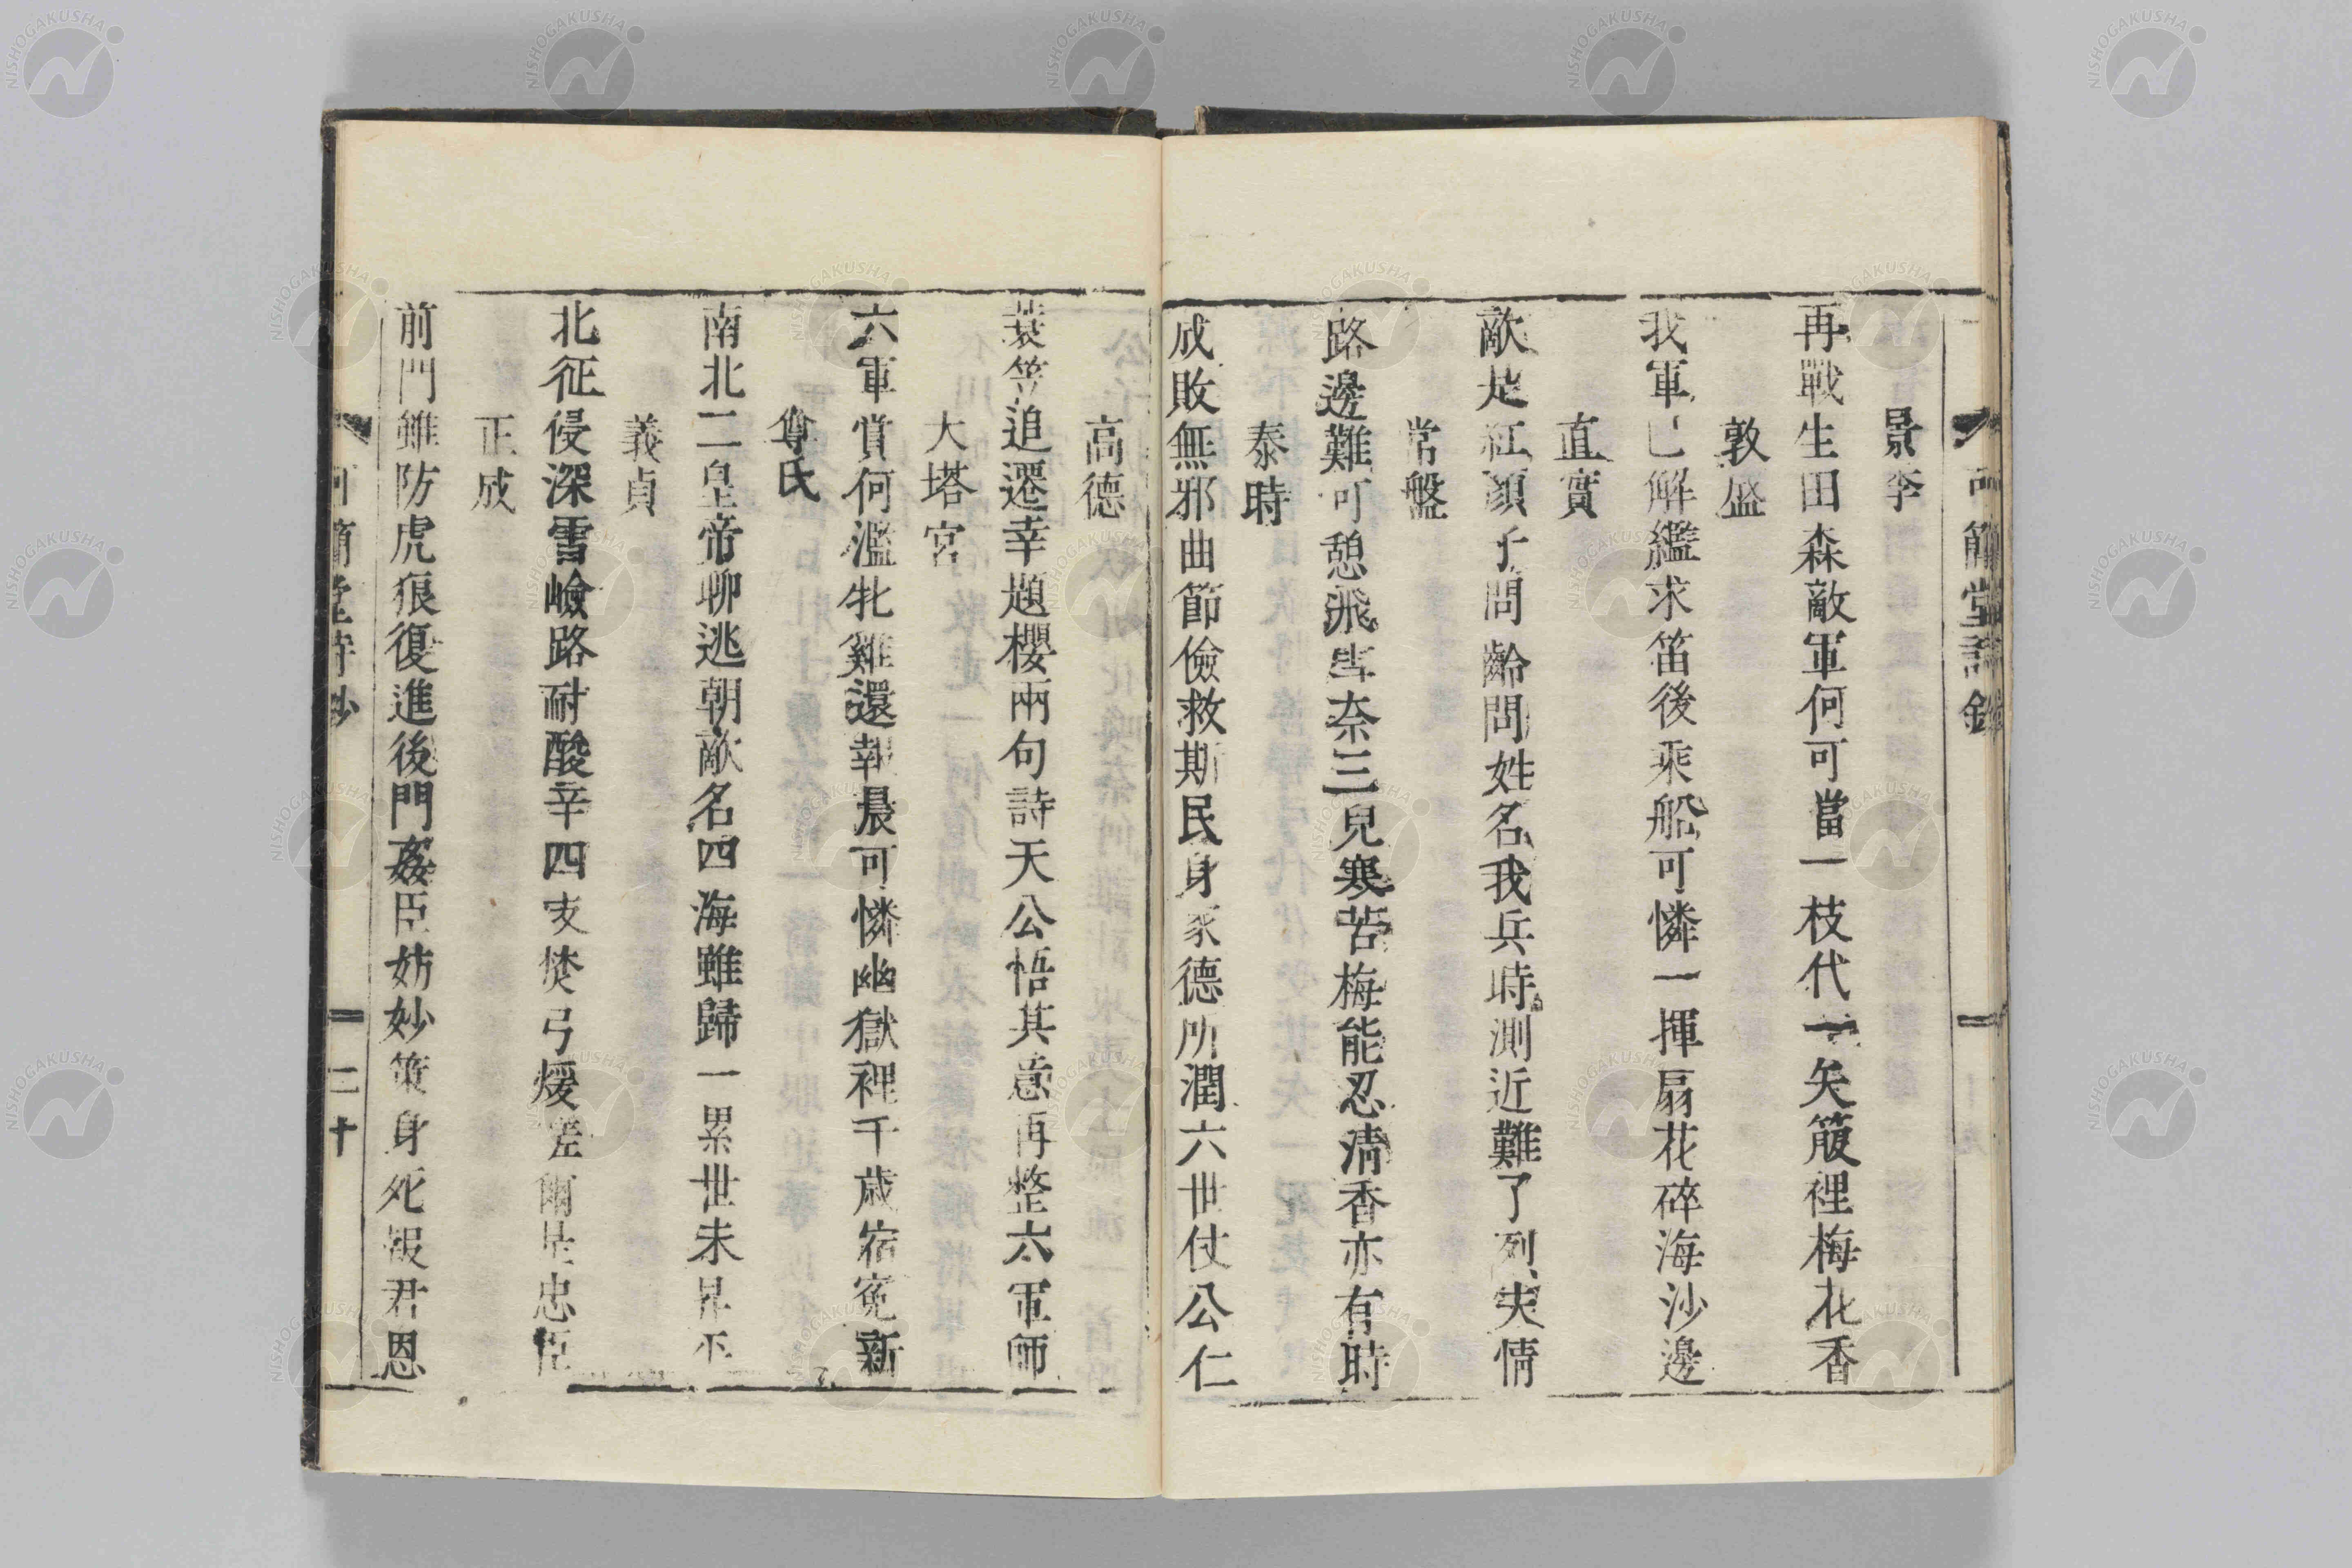 景季
再戰生田森敵軍何可當一枝代一矢箙裡梅花香
敦盛
我軍已解纜求笛後乘船可憐一揮扇花碎海沙邊
直實
敵是紅顏子問齡問姓名我兵時測近難了列夫情
常盤
路邊難可憩飛雪奈三兒寒苦梅能忍淸香亦有時
泰時
成敗無邪曲節儉救斯民身家德所潤六世仗公仁
高德
蓑笠追遷幸題櫻兩句詩天公悟其意再整六軍師
大塔宮
六軍賞何濫牝雞還報晨可憐幽獄裡千歲宿冤新
尊氏
南北二皇帝聊逃朝敵名四海雖歸一累世未昇平
義貞
北征侵深雪嶮路耐酸辛四支焚弓煖嗟爾是忠臣
正成
前門雖防虎狼復進後門姦臣妨妙策身死報君恩
二十
NISHOGAKUSHA